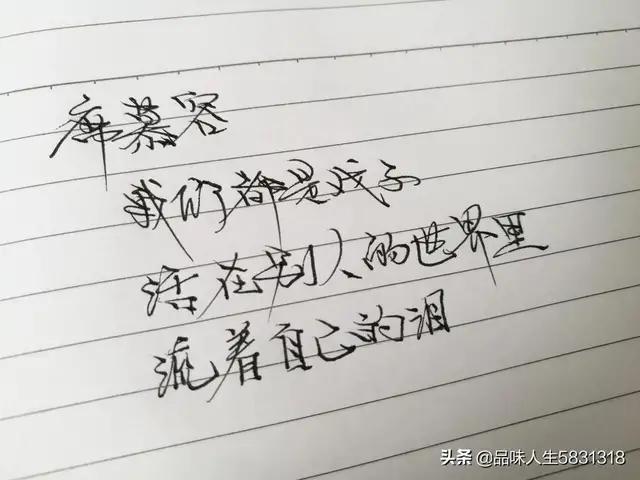 席慕容
我们都是戏子
活在别人的世界里
流着自己的泪
头条 @品味人生5831318